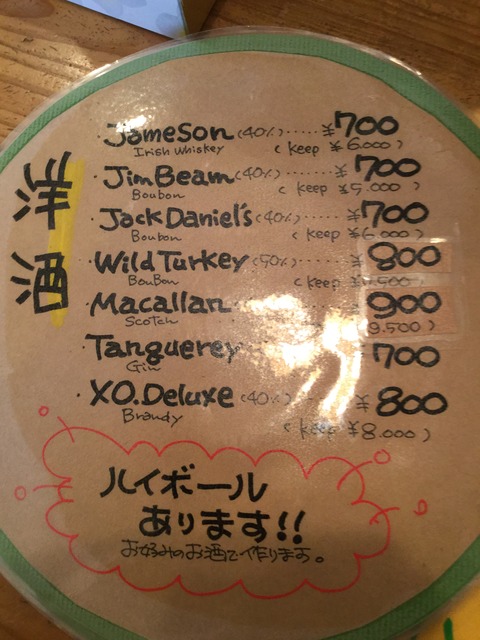 洋酒
・Jameson (40%)‥‥ ¥700
Irish Whiskey ( keep ¥6.000 )
・Jim Beam (40%)‥‥‥ ¥700
Boubon ( keep ¥5.000 )
・Jack Daniel's (40%)‥‥‥ ¥700
Boubon ( keep ¥6.000 )
・Wild Turkey (50%)‥‥ 800
BouBon ( keep
・Macallan 900
Scotch 9.500 )
・Tanguerey ¥700
Gin
・XO.Deluxe (40%) ¥800
Brandy ( keep ¥8.000 )
ハイボール
あります!!
お好みのお酒で作ります。